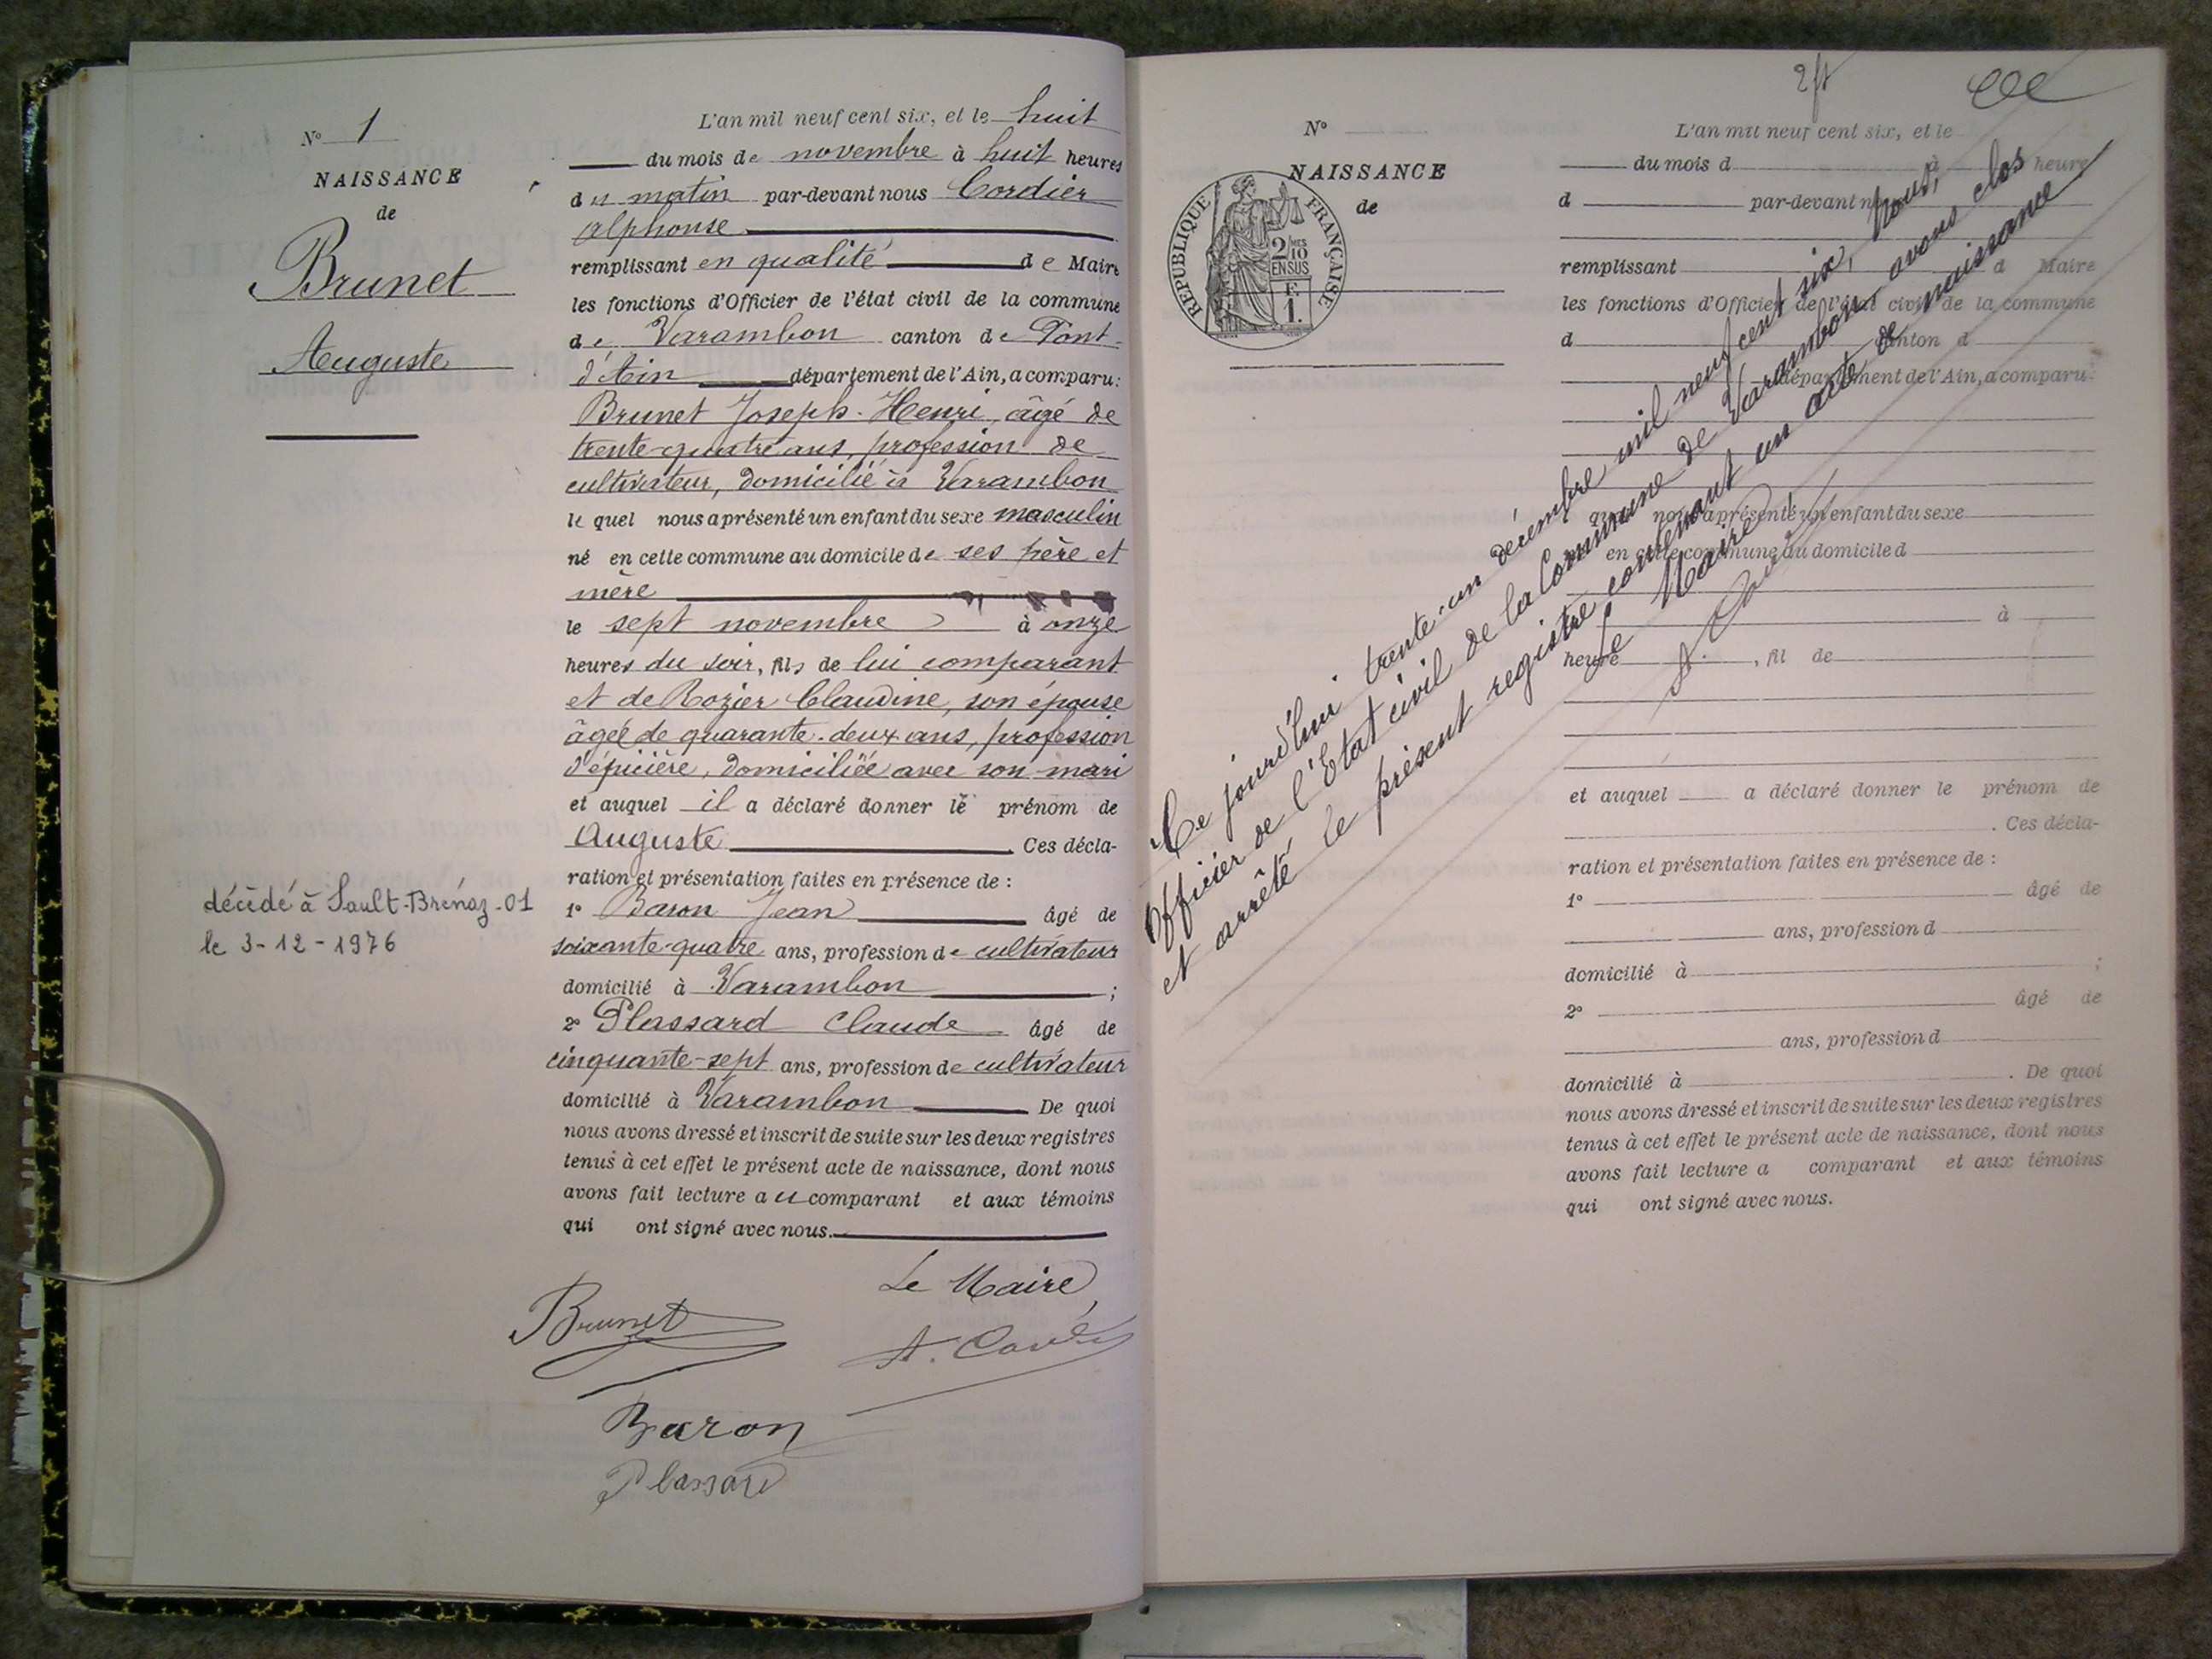 N° 1
NAISSANCE
de
Brunet
Auguste
décédé à Sault-Brénaz-01
le 3-12-1976
L'an mil neuf cent six, et le huit
du mois de novembre à huit heures
du matin par-devant nous Cordier
Alphonse
remplissant en qualité de Maire
les fonctions d'Officier de l'état civil de la commune
de Varambon canton de Pont-
d'Ain département de l'Ain, a comparu:
Brunet Joseph-Henri, âgé de
trente-quatre ans, profession de
cultivateur, domicilié à Varambon
le quel nous a présenté un enfant du sexe masculin
né en cette commune au domicile de ses père et
mère
le sept novembre à onze
heures du soir, fils de lui comparant
et de Rozier Claudine, son épouse
âgée de quarante-deux ans, profession
d'épicière, domiciliée avec son mari
et auquel il a déclaré donner le prénom de
Auguste. Ces décla-
ration et présentation faites en présence de :
1° Baron Jean âgé de
soixante-quatre ans, profession de cultivateur
domicilié à Varambon ;
2° Plassard Claude âgé de
cinquante-sept ans, profession de cultivateur
domicilié à Varambon De quoi
nous avons dressé et inscrit de suite sur les deux registres
tenus à cet effet le présent acte de naissance, dont nous
avons fait lecture au comparant et aux témoins
qui ont signé avec nous.
Le Maire,
Brunet
Baron
Plassard
N°
NAISSANCE
de
REPUBLIQUE FRANÇAISE
2/10
EN SUS
F.
1.
L'an mil neuf cent six, et le
du mois d à heure
d par-devant nous
remplissant d Maire
les fonctions d'Officier de l'état civil de la commune
d canton d
département de l'Ain, a comparu:
quel nous a présenté un enfant du sexe
en cette commune au domicile d
à
heure , fil de
et auquel a déclaré donner le prénom de
. Ces décla-
ration et présentation faites en présence de :
1° âgé de
ans, profession d
domicilié à ;
2° âgé de
ans, profession d
domicilié à . De quoi
nous avons dressé et inscrit de suite sur les deux registres
tenus à cet effet le présent acte de naissance, dont nous
avons fait lecture a comparant et aux témoins
qui ont signé avec nous.
Ce jourd'hui trente-un décembre mil neuf cent six, Nous,
Officier de l'Etat civil de la Commune de Varambon avons clos
et arrêté le présent registre contenant un acte de naissance
Le Maire